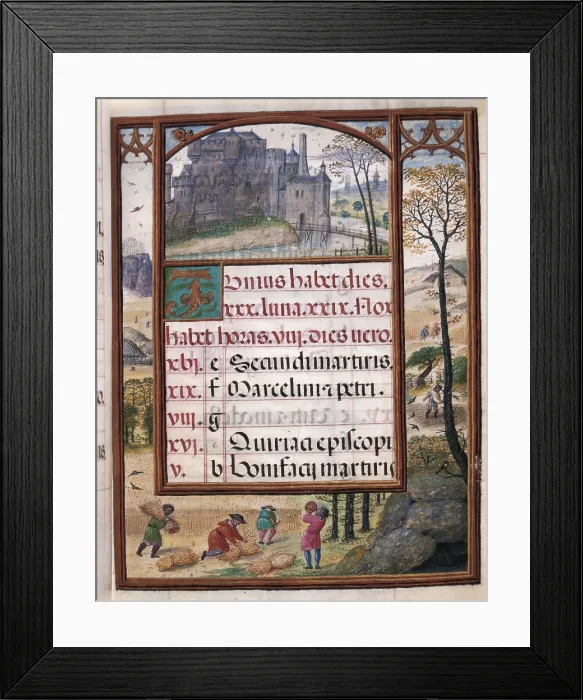 Junius habet dies.
xxx. luna. xxix. Nox
habet horas. viij. dies uero.
xbj. e Secundi martiris.
xix. f Marcelini ⁊ petri.
viij. g
xvj. Quiriaci episcopi
v. b Bonifacij martiris